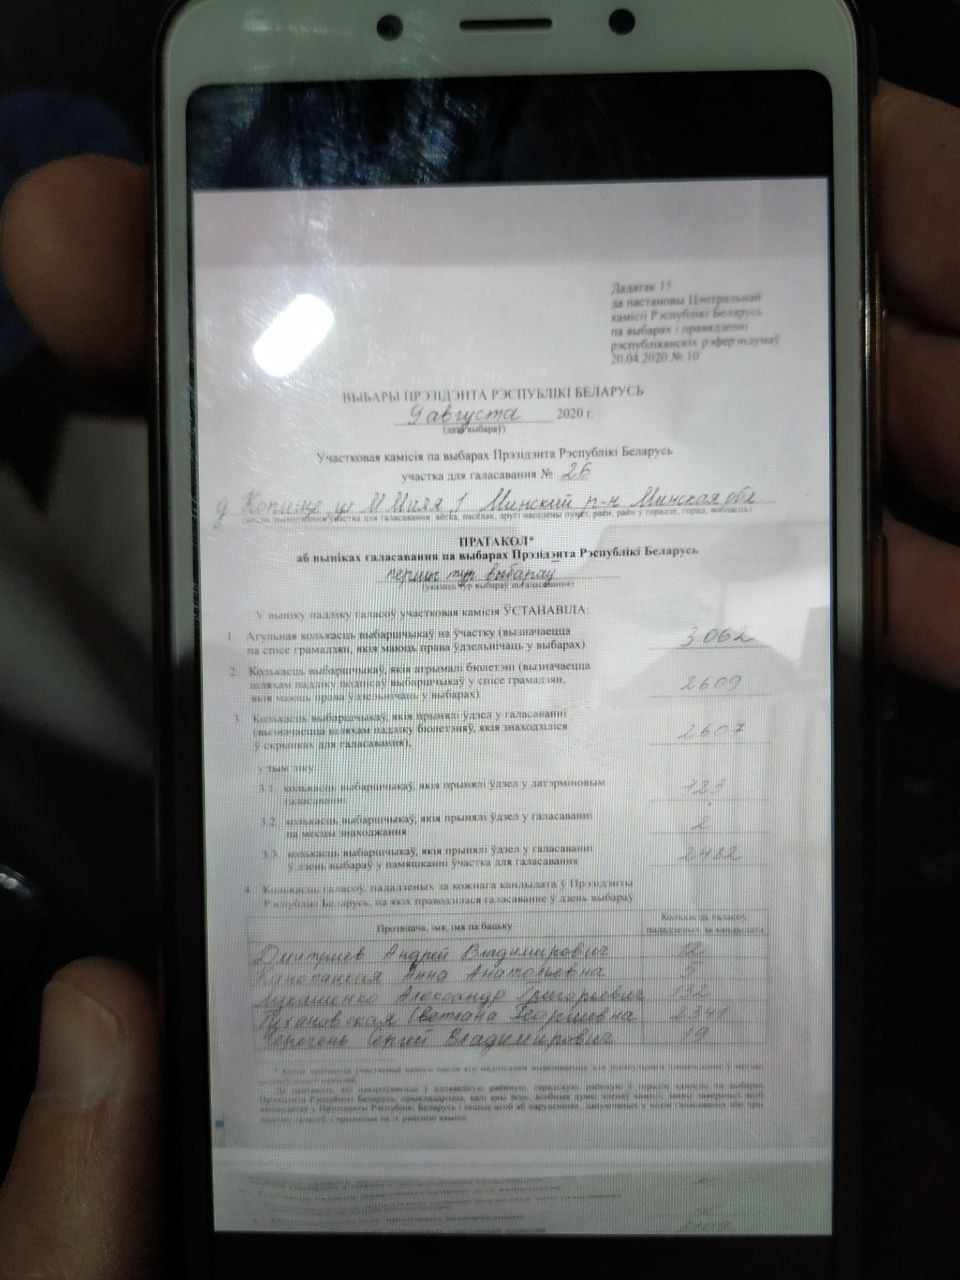 Дадатак 15
да пастановы Цэнтральнай
камісіі Рэспублікі Беларусь
па выбарах і правядзенні
рэспубліканскіх рэферэндумаў
20.04.2020 № 10
ВЫБАРЫ ПРЭЗІДЭНТА РЭСПУБЛІКІ БЕЛАРУСЬ
9 августа 2020 г.
(дата выбараў)
Участковая камісія па выбарах Прэзідэнта Рэспублікі Беларусь
участка для галасавання № 26
д Копище ул М Миля, 1 Минский р-н Минская обл
(месца знаходжання участка для галасавання: вёска, пасёлак, другі населены пункт, раён, раён у горадзе, горад, вобласць)
ПРАТАКОЛ*
аб выніках галасавання па выбарах Прэзідэнта Рэспублікі Беларусь
першы тур выбараў
(указаць тур выбараў ці галасавання)
У выніку падліку галасоў участковая камісія ЎСТАНАВІЛА:
1. Агульная колькасць выбаршчыкаў на ўчастку (вызначаецца
па спісе грамадзян, якія маюць права ўдзельнічаць у выбарах) 3 062
2. Колькасць выбаршчыкаў, якія атрымалі бюлетэні (вызначаецца
шляхам падліку подпісаў выбаршчыкаў у спісе грамадзян,
якія маюць права ўдзельнічаць у выбарах) 2609
3. Колькасць выбаршчыкаў, якія прынялі ўдзел у галасаванні
(вызначаецца шляхам падліку бюлетэняў, якія знаходзіліся
ў скрынках для галасавання), 2607
у тым ліку:
3.1. колькасць выбаршчыкаў, якія прынялі ўдзел у датэрміновым
галасаванні 123
3.2. колькасць выбаршчыкаў, якія прынялі ўдзел у галасаванні
па месцы знаходжання 2
3.3. колькасць выбаршчыкаў, якія прынялі ўдзел у галасаванні
ў дзень выбараў у памяшканні ўчастка для галасавання 2482
4. Колькасць галасоў, пададзеных за кожнага кандыдата ў Прэзідэнты
Рэспублікі Беларусь, па якіх праводзілася галасаванне ў дзень выбараў
Прозвішча, імя, імя па бацьку Колькасць галасоў,
пададзеных за кандыдата
Дмитриев Андрей Владимирович 12
Канопацкая Анна Анатольевна 5
Лукашенко Александр Григорьевич 132
Тихановская Светлана Георгиевна 2341
Черечень Сергей Владимирович 19